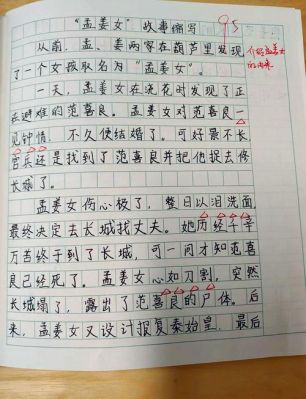 “孟姜女”故事缩写
95
从前，孟、姜两家在葫芦里发现
了一个女孩取名为“孟姜女”。
介绍孟姜女
的由来。
一天，孟姜女在浇花时发现了正
在避难的范喜良。孟姜女对范喜良一
见钟情，不久便结婚了。可好景不长，
官兵还是找到了范喜良并把他捉去修
长城了。
孟姜女伤心极了，整日以泪洗面，
最终决定去长城找丈夫。她历经千辛
万苦终于到了长城，可一问才知范喜
良已经死了。孟姜女心如刀割，突然
长城塌了，露出了范喜良的尸体。后
来，孟姜女又设计报复秦始皇，最后